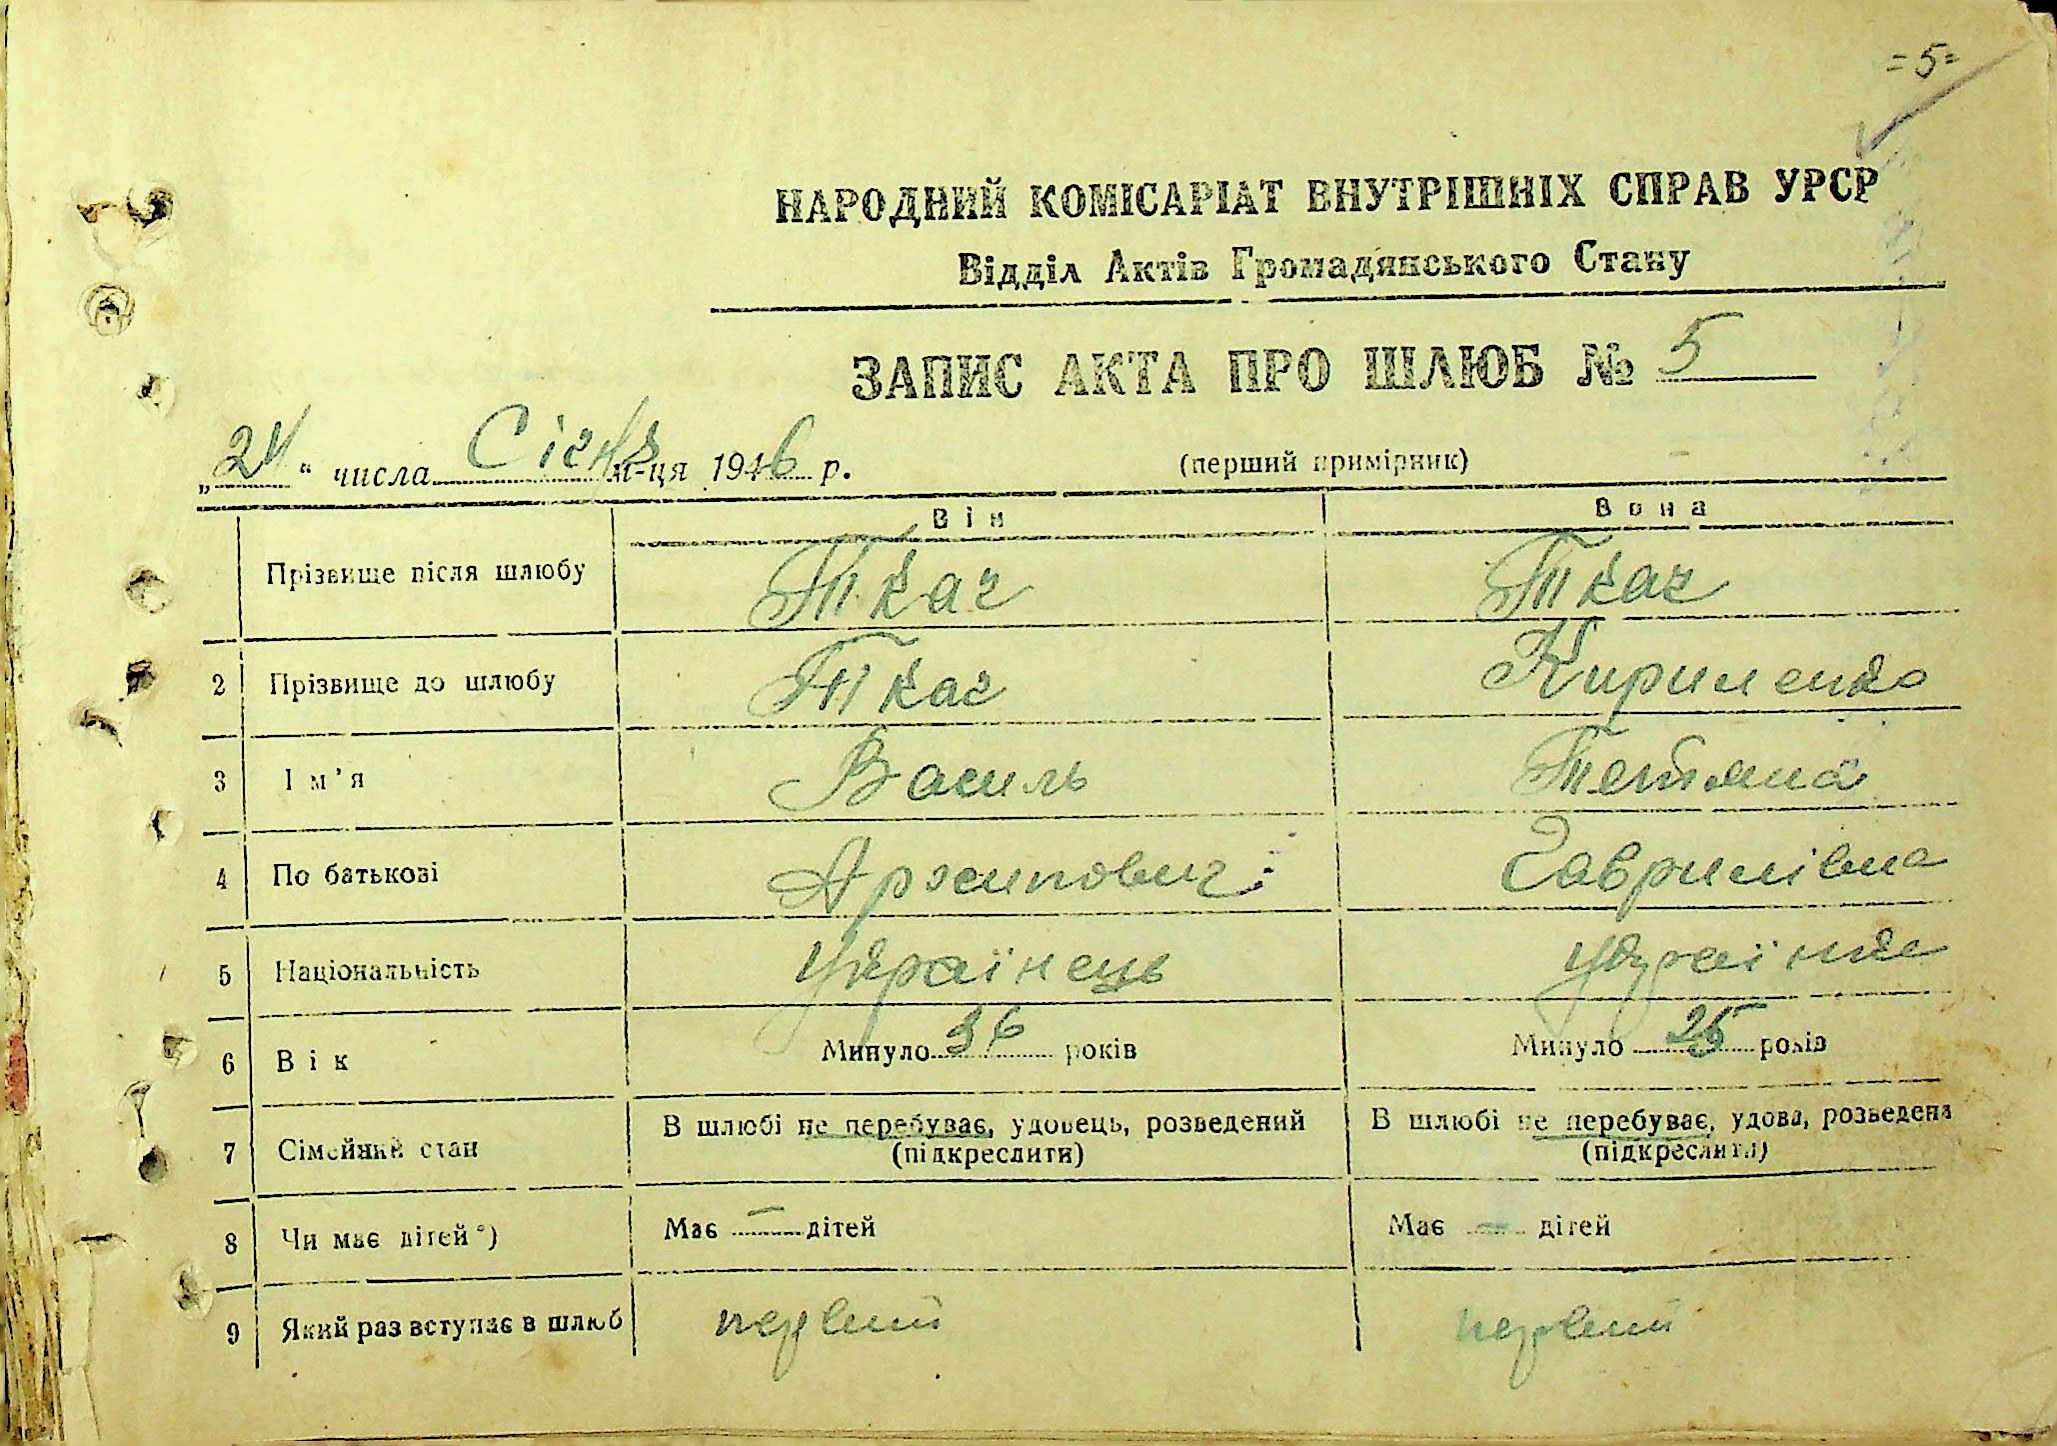 =5=
НАРОДНИЙ КОМІСАРІАТ ВНУТРІШНІХ СПРАВ УРСР
Відділ Актів Громадянського Стану
ЗАПИС АКТА ПРО ШЛЮБ № 5
„24“ числа Січня м-ця 1946 р. (перший примірник)
Він Вона
Прізвище після шлюбу Ткач Ткач
2 Прізвище до шлюбу Ткач Кириленко
3 Ім'я Василь Тетяна
4 По батькові Архипович Гаврилівна
5 Національність Українець Українка
6 Вік Минуло 36 років Минуло 25 років
7 Сімейний стан В шлюбі не перебуває, удовець, розведений (підкреслити) В шлюбі не перебуває, удова, розведена (підкреслити)
8 Чи має дітей*) Має — дітей Має — дітей
9 Який раз вступає в шлюб первий первий